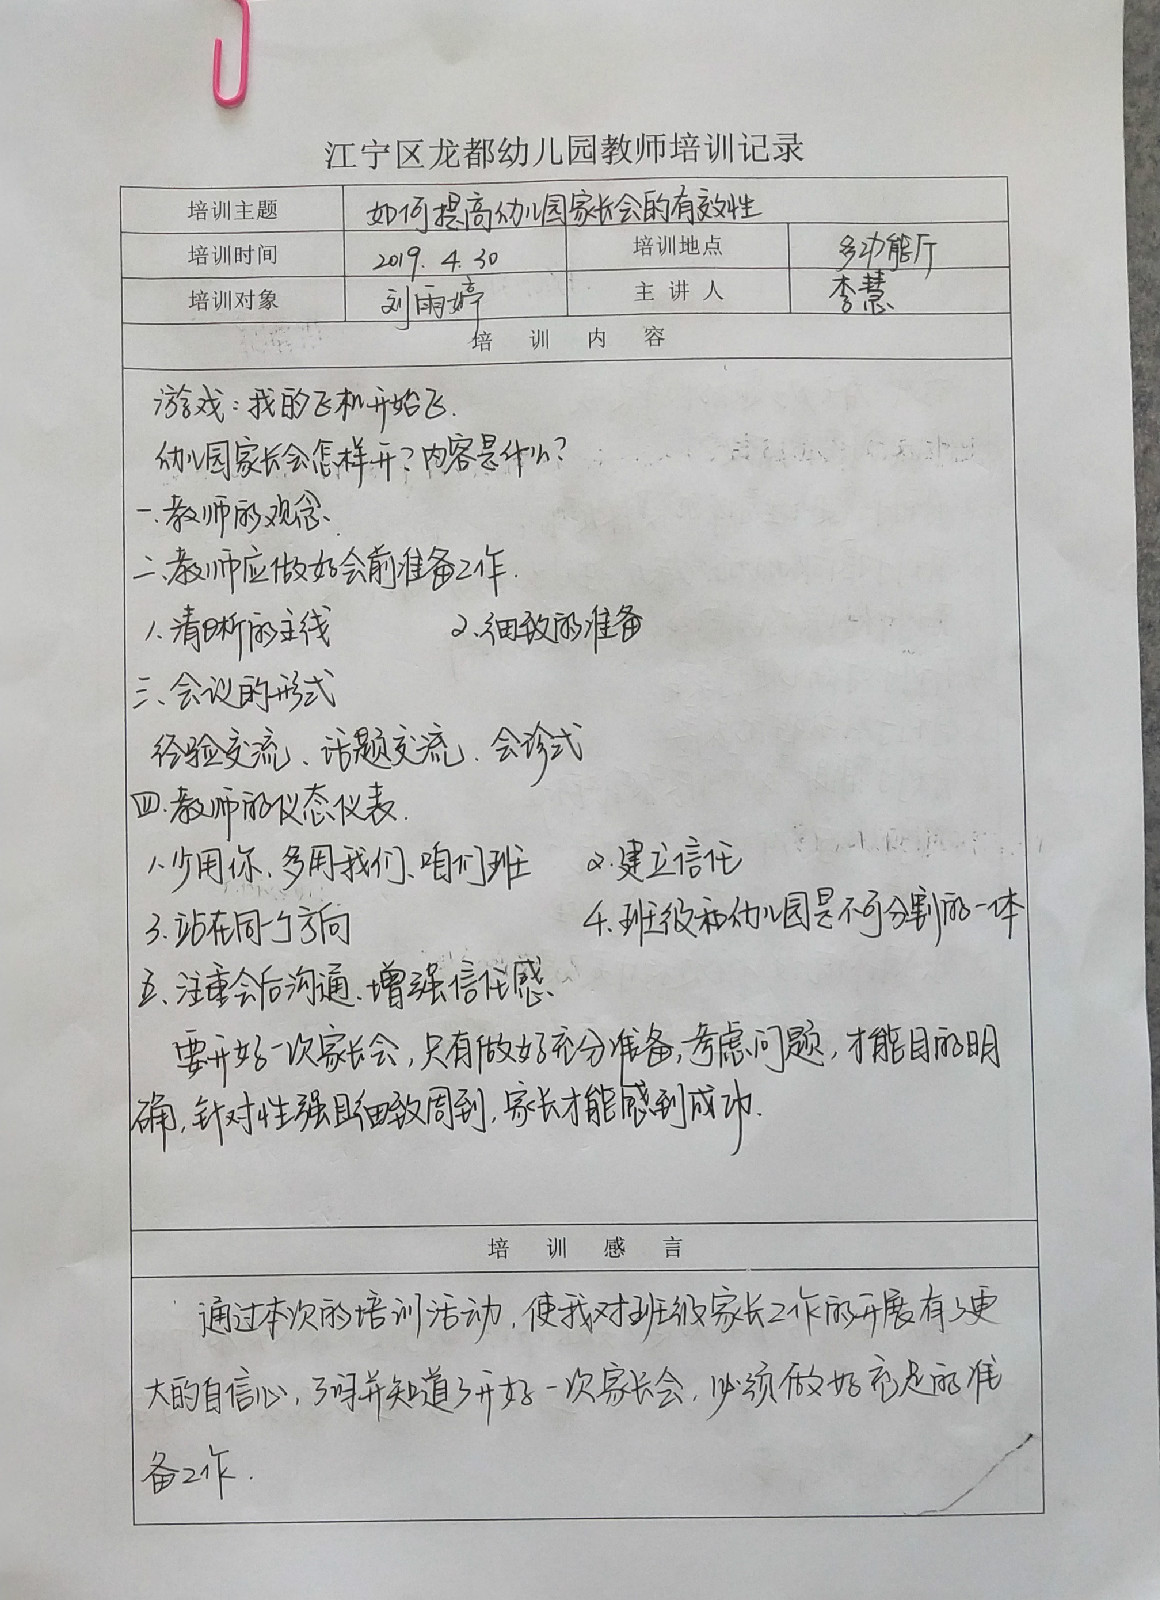 江宁区龙都幼儿园教师培训记录
培训主题 如何提高幼儿园家长会的有效性
培训时间 2019.4.30 培训地点 多功能厅
培训对象 刘雨婷 主讲人 李慧
培训内容
游戏：我的飞机开始飞.
幼儿园家长会怎样开？内容是什么？
一.教师的观念、
二、教师应做好会前准备工作.
1.清晰的主线 2.细致的准备
三、会议的形式
经验交流、话题交流、会诊式
四.教师的仪态仪表.
1.少用你、多用我们、咱们班 2.建立信任
3.站在同一个方向 4.班级和幼儿园是不可分割的一体
五、注重会后沟通、增强信任感、
要开好一次家长会,只有做好充分准备,考虑问题,才能目的明
确,针对性强且细致周到,家长才能感到成功.
培训感言
通过本次的培训活动,使我对班级家长工作的开展有了更
大的自信心,了解并知道了开好一次家长会,必须做好充足的准
备工作.